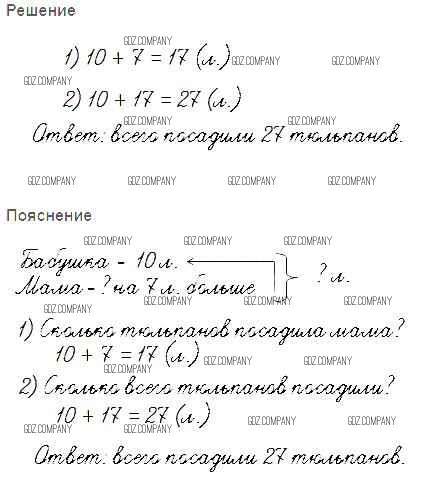 Решение
GDZ.COMPANY
1) 10 + 7 = 17 (л.) GDZ.COMPANY GDZ.COMPANY
GDZ.COMPANY
2) 10 + 17 = 27 (л.)
GDZ.COMPANY GDZ.COMPANY
Ответ: всего посадили 27 тюльпанов.
GDZ.COMPANY GDZ.COMPANY GDZ.COMPANY GDZ.COMPANY
Пояснение
GDZ.COMPANY GDZ.COMPANY GDZ.COMPANY
Бабушка - 10 л.
Мама - ? на 7 л. больше ? л.
GDZ.COMPANY GDZ.COMPANY GDZ.COMPANY GDZ.COMPANY
1) Сколько тюльпанов посадила мама?
10 + 7 = 17 (л.) GDZ.COMPANY GDZ.COMPANY
GDZ.COMPANY
2) Сколько всего тюльпанов посадили?
10 + 17 = 27 (л.) GDZ.COMPANY GDZ.COMPANY
GDZ.COMPANY GDZ.COMPANY
Ответ: всего посадили 27 тюльпанов.